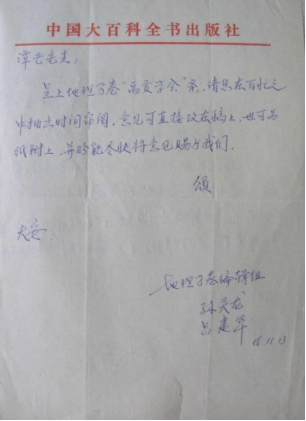 中国大百科全书出版社
淳老先生:
呈上地理学卷“禹贡学会”条,请您在百忙之
中抽点时间审阅。意见可直接改在稿上,也可另
纸附上,并盼能尽快将意见赐与我们。
颂
大安
地理学卷编辑组
孙关龙
吕建华
11.13